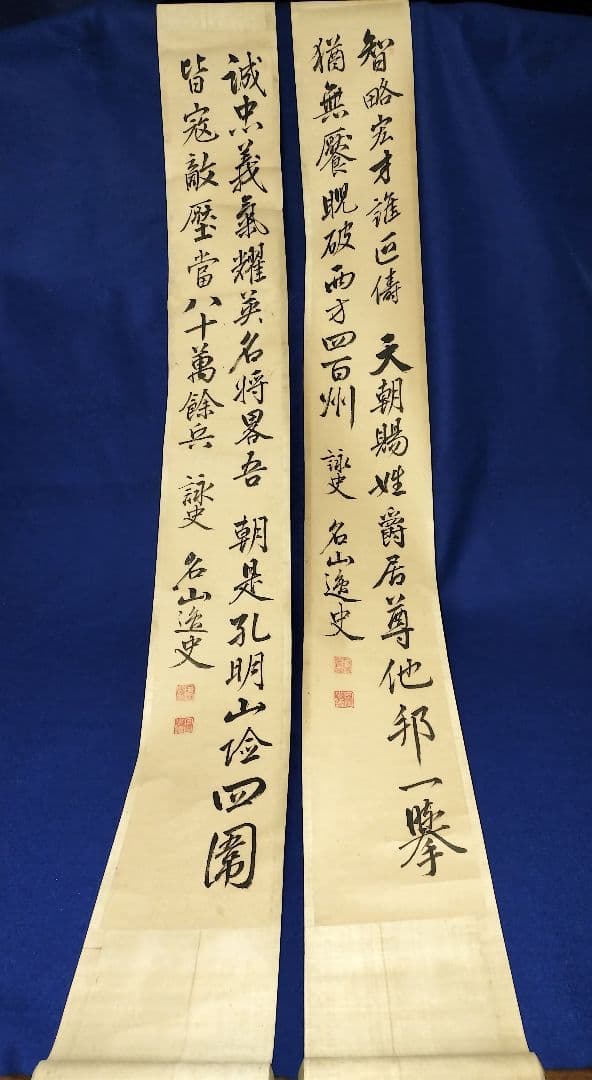 智略宏才誰匹儔 天朝賜姓爵居尊他邦一擧
猶無饜睨破兩才四百州 詠史 名山逸史
誠忠義氣耀英名将畧吾 朝是孔明山险四圍
皆寇敵壓當八十萬餘兵 詠史 名山逸史